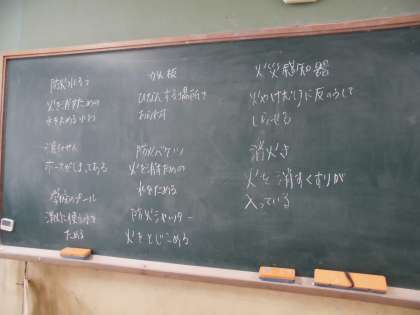 防火水そう
火を消すための
水をためるところ
消火せん
ホースがしまってある
学校のプール
消火に使う水を
ためる
ひなんする場所を
防火バケツ
火を消すための
水をためる
防火シャッター
火をとじこめる
火災感知器
火やけむりに反のうして
しらせる
消火き
火を消すくすりが
入っている